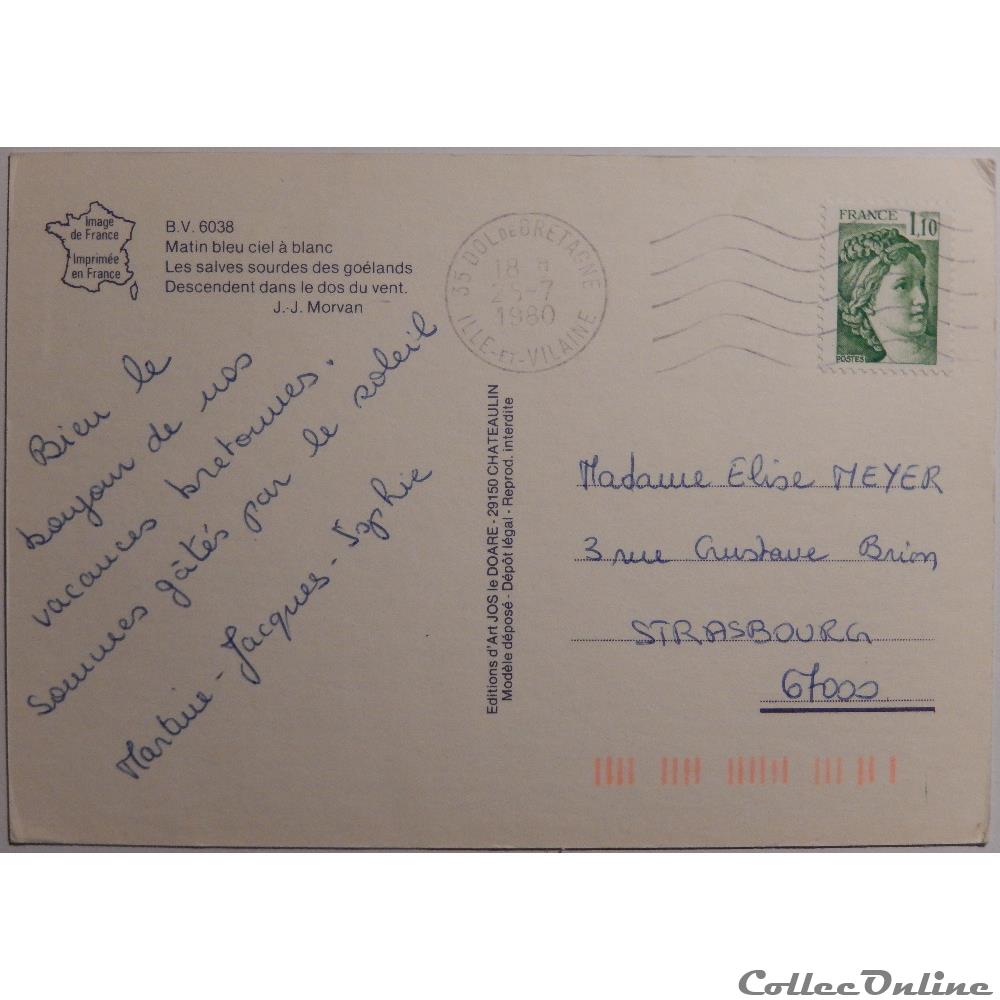 Image
de France
Imprimée
en France
B.V. 6038
Matin bleu ciel à blanc
Les salves sourdes des goélands
Descendent dans le dos du vent.
J.-J. Morvan
35 DOL DE BRETAGNE
18 H
-7
1980
ILLE-ET-VILAINE
FRANCE
1,10
POSTES
Bien le
bonjour de nos
vacances bretonnes.
Sommes gâtés par le soleil
Martine - Jacques - Sophie
Editions d'Art JOS le DOARE - 29150 CHATEAULIN
Modèle déposé - Dépôt légal - Reprod. interdite
Madame Elise MEYER
3 rue Gustave Brion
STRASBOURG
67000
CollecOnline